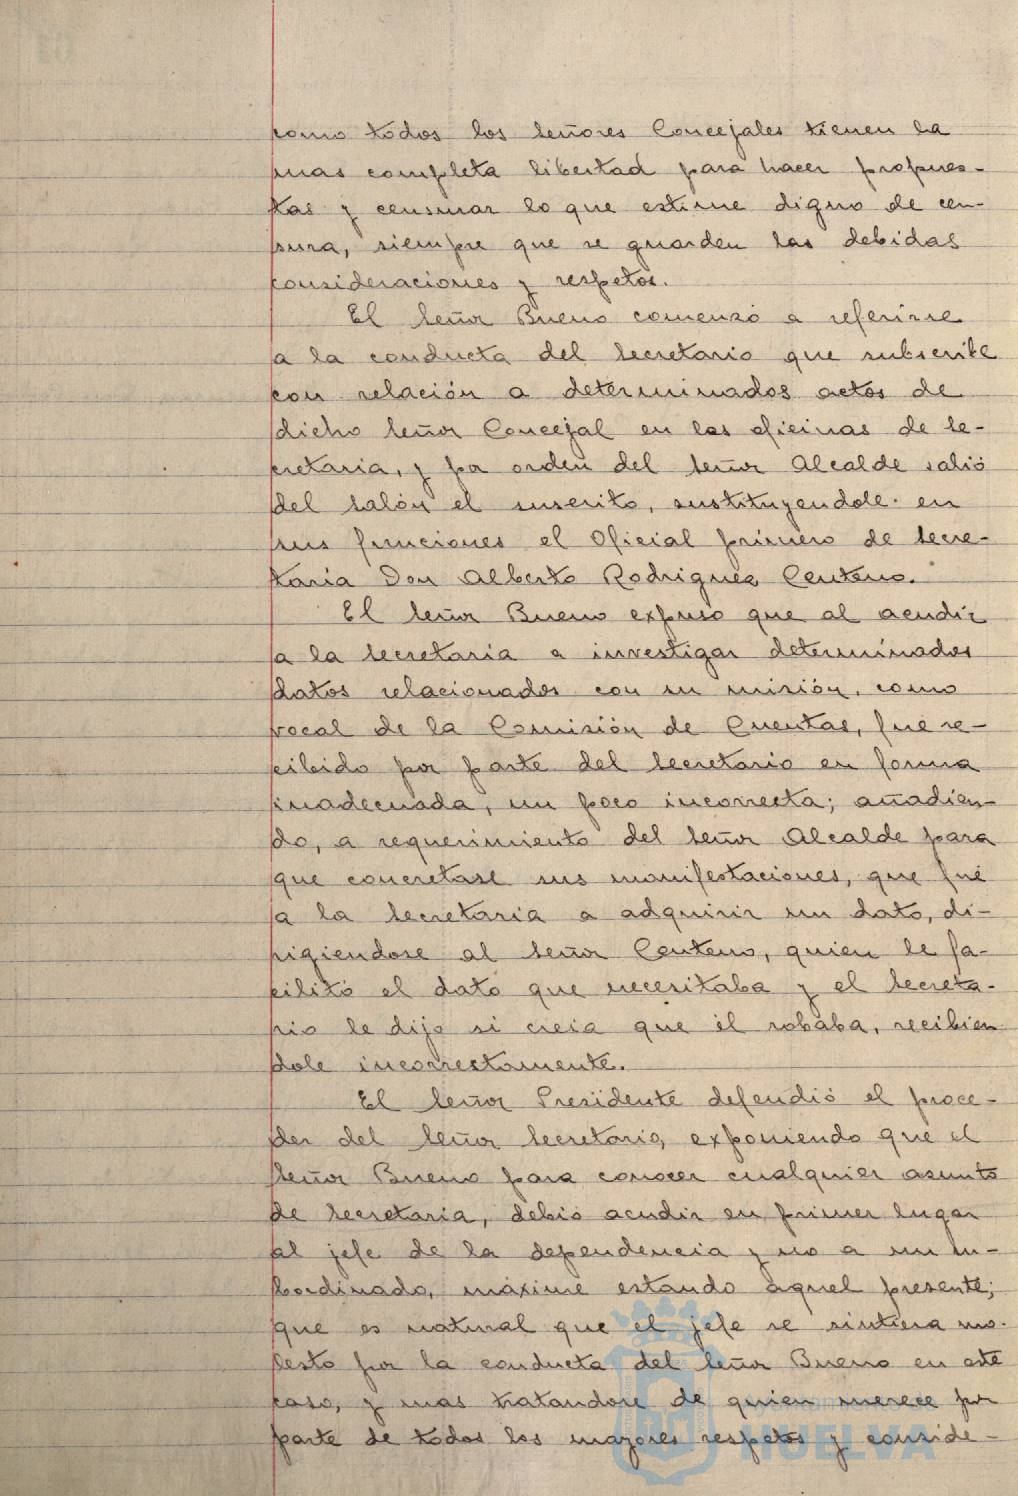 como todos los señores Concejales tienen la
mas completa libertad para hacer propues-
tas y censurar lo que estime digno de cen-
sura, siempre que se guarden las debidas
consideraciones y respetos.
El señor Bueno comenzó a referirse
a la conducta del Secretario que subscribe
con relación a determinados actos de
dicho señor Concejal en las oficinas de Se-
cretaria, y por orden del señor Alcalde salió
del salón el suscrito, sustituyendole en
sus funciones el Oficial primero de Secre-
taria Don Alberto Rodriguez Centeno.
El señor Bueno expuso que al acudir
a la Secretaría a investigar determinados
datos relacionados con su misión, como
vocal de la Comisión de Cuentas, fue re-
cibido por parte del Secretario en forma
inadecuada, un poco incorrecta; añadien-
do, a requerimiento del señor Alcalde para
que concretase sus manifestaciones, que fué
a la Secretaria a adquirir un dato, di-
rigiendose al señor Centeno, quien le fa-
cilitó el dato que necesitaba y el Secreta-
rio le dijo si creia que él robaba, recibien
dole incorrectamente.
El señor Presidente defendió el proce-
der del señor Secretario, exponiendo que el
señor Bueno para conocer cualquier asunto
de Secretaria, debió acudir en primer lugar
al jefe de la dependencia y no a un su-
bordinado, máxime estando aquel presente;
que es natural que el jefe se sintiera mo-
lesto por la conducta del señor Bueno en este
caso, y mas tratandose de quien merece por
parte de todos los mayores respetos y conside-
HUELVA